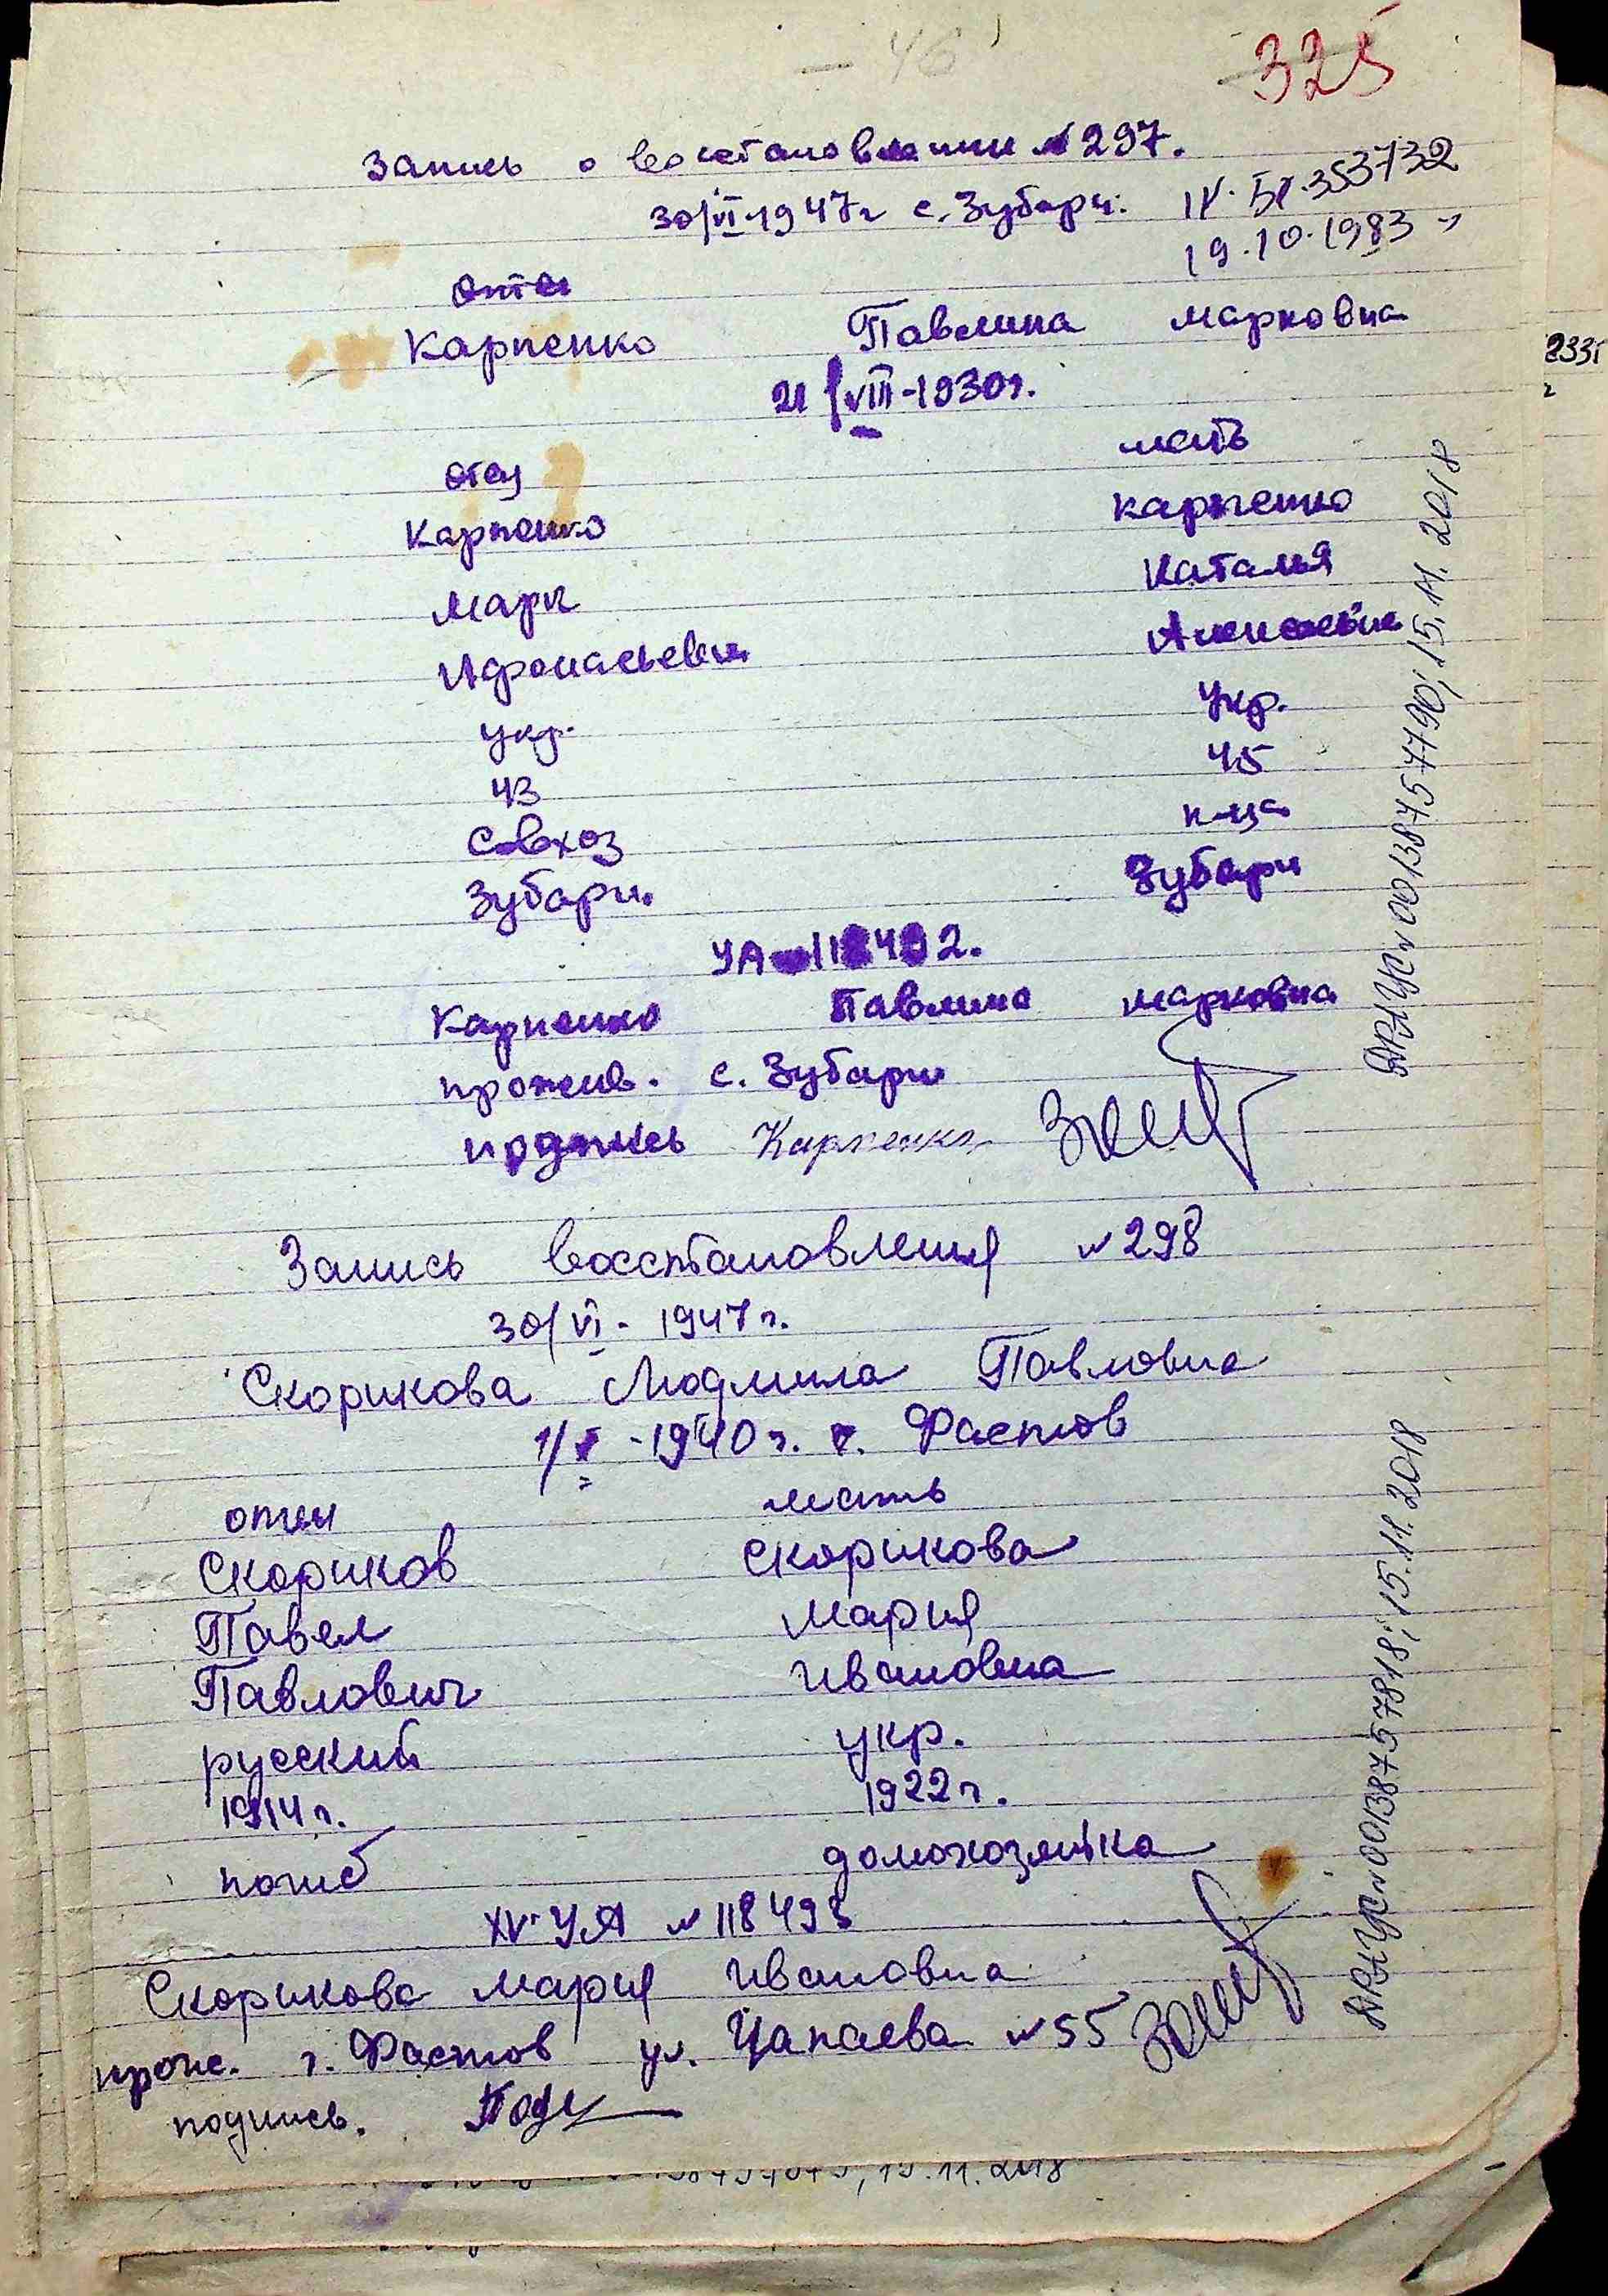 46
325
Запись о восстановлении №297.
30/VI-1947г с. Зубари.
IV. БК.353732
19.10.1983
отец
Карпенко Павлина Марковна
21/VIII-1930г.
отец мать
Карпенко Карпенко
Марк Наталья
Афонасьевич Алексеевна
укр. укр.
43 45
Совхоз к-ца
Зубари. Зубари
УА 118492.
Карпенко Павлина Марковна
прожив. с. Зубари
подпись Карпенко
Запись восстановления №298
30/VI-1947г.
Скорикова Людмила Павловна
1/X-1940г. г. Фастов
отец мать
Скориков Скорикова
Павел Мария
Павлович Ивановна
русский укр.
1914г. 1922г.
погиб домохозяйка
XV-УА №118493
Скорикова Мария Ивановна
прож. г. Фастов ул. Чапаева №55
подпись.
ДРАЦС №00138757790; 15.11.2018
ДРАЦС №00138757818; 15.11.2018
2331
, 15.11.2018